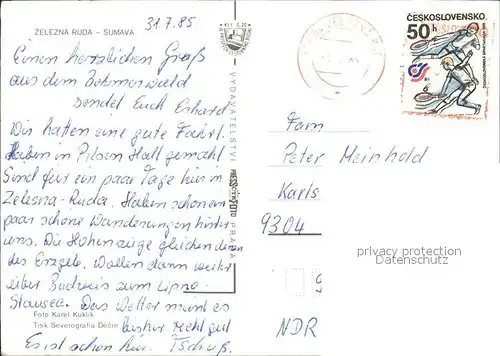 31.7.85
ŽELEZNA RUDA – ŠUMAVA
Einen herzlichen Gruß
aus dem Böhmerwald
sendet Euch Erhard.
Wir hatten eine gute Fahrt.
Haben in Pilsen Halt gemacht.
Sind für ein paar Tage hier in
Zelesna-Ruda. Haben schon ein
paar schöne Wanderungen hinter
uns. Die Höhenzüge gleichen denen
des Erzgeb. Wollen dann weiter
über Budweis zum Lipno
Stausee. Das Wetter meint es
Foto Karel Kuklík
Tisk Severografia Děčín
bisher recht gut
Es ist schön hier. Tschüß.
Kčs 0,20
VYDAVATELSTVÍ PRESSFOTO PRAHA
ČESKOSLOVENSKO
50h
Fam
Peter Meinhold
Karls
9304
NDR
privacy protection
Datenschutz